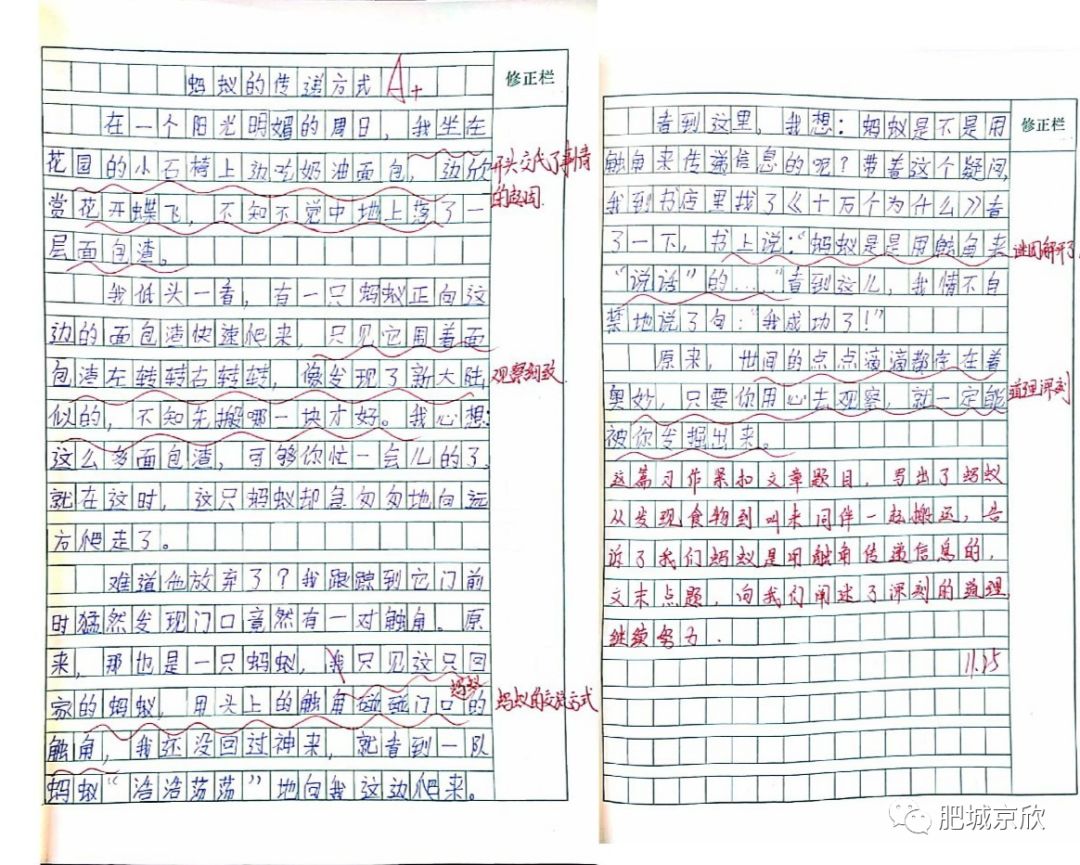 蚂蚁的传递方式 A+
修正栏
在一个阳光明媚的周日，我坐在
花园的小石椅上边吃奶油面包，边欣
开头交代了事情
赏花开蝶飞，不知不觉中地上落了一
的起因.
层面包渣。
我低头一看，有一只蚂蚁正向这
边的面包渣快速爬来，只见它周着面
包渣左转转右转转，像发现了新大陆
观察细致.
似的，不知先搬哪一块才好。我心想：
这么多面包渣，可够你忙一会儿的了，
就在这时，这只蚂蚁却急匆匆地向远
方爬走了。
难道他放弃了？我跟踪到它门前
时猛然发现门口竟然有一对触角。原
来，那也是一只蚂蚁，我只见这只回
蚂蚁
家的蚂蚁，用头上的触角碰碰门口的
蚂蚁的交流方式
触角，我还没回过神来，就看到一队
蚂蚁“浩浩荡荡”地向我这边爬来。
看到这里，我想：蚂蚁是不是用
修正栏
触角来传递信息的呢？带着这个疑问，
我到书店里找了《十万个为什么》看
了一下，书上说：“蚂蚁是是用触角来
谜团解开了
“说话”的....”看到这儿，我情不自
禁地说了句：“我成功了！”
原来，世间的点点滴滴都存在着
奥妙，只要你用心去观察，就一定能
道理深刻
被你发掘出来。
这篇习作紧扣文章题目，写出了蚂蚁
从发现食物到叫来同伴一起搬运，告
诉了我们蚂蚁是用触角传递信息的，
文末点题，向我们阐述了深刻的道理
继续努力.
11.25
肥城京欣